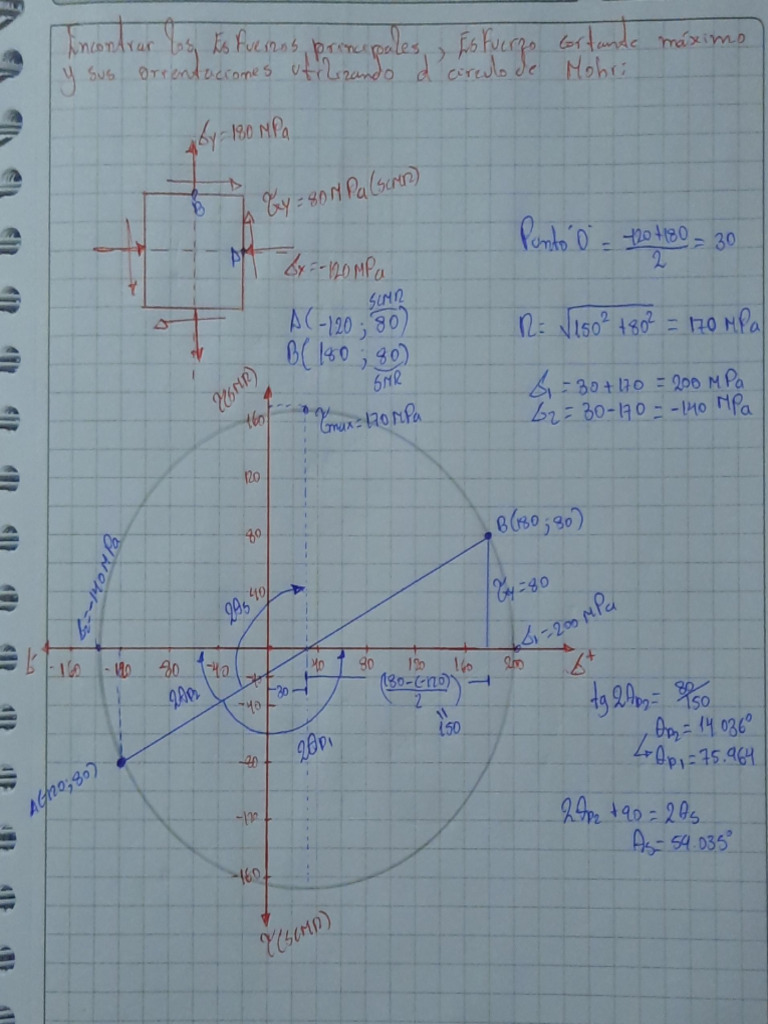 Encontrar los Esfuerzos principales, Esfuerzo cortande máximo
y sus orientaciones utilizando el círculo de Mohr:
σy=180 MPa
B
τxy=80MPa(SCMR)
A
σx=-120MPa
SCMR
A(-120 ; 80)
B(180 ; 80)
SMR
Punto "O" = -120+180/2 = 30
R= √150² +80² = 170 MPa
σ1 = 30+170 = 200 MPa
σ2 = 30-170 = -140 MPa
τ(SMR)
160
τmax=170MPa
120
80
B(180 ; 80)
σ2=-140MPa
40
2θs
τxy=80
σ1=200 MPa
-160 -120 80 -40 40 80 120 160 200 σ+
30
(180-(-120)/2)
"
150
2θp2
-40
2θp1
tg 2θp2 = 80/150
θp2 = 14.036°
↳ θp1 = 75.964
-80
A(-120; 80)
2θp2 +90 = 2θs
θs= 59.035°
-120
-160
τ(SCMR)